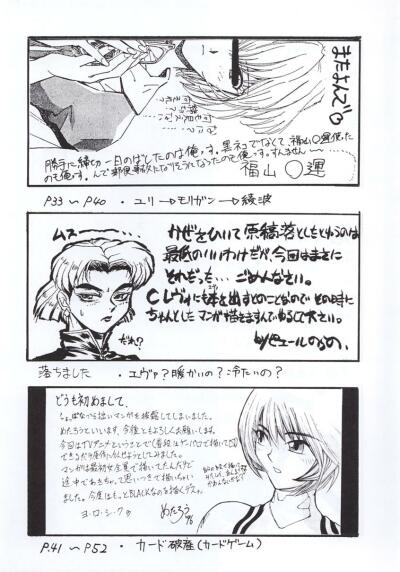 またよんで♡
勝手に締切一日のばしたのは俺っす。黒ネコでなくて、福山○通使った
のも俺っす。んで郵便事故になりそうになったのも俺っす。すんません〜
福山○運
P33 〜 P40 ・ ユリ → モリガン → 綾波
ムスー…
かぜをひいて原稿落としたとゆうのは
最低のいいわけだが、今回はまさに
それだった… ごめんなさい。
Cレヴォにも本を出すとのことなので その時に
ちゃんとしたマンガ描きますんでゆるして下さい。
だれ?
落ちました ・ エヴァ? 暖かいの? 冷たいの?
どうも初めまして、
しょっぱなから拙いマンガを披露してしまいました。
めたろうといいます、今後ともよろしくお願いします。
今回はTVアニメということで
できるだけ原作に似せようとしてみました。
マンガは最初女主翼で描いてたんだけど
途中であきちゃって思いつきで描いちゃい
ました。今度はもっとBLACKなのを描くデス。
ヨ・ロ・シ・ク♡
めたろう 96
P.41 〜 P52 ・ カード破産(カードゲーム)